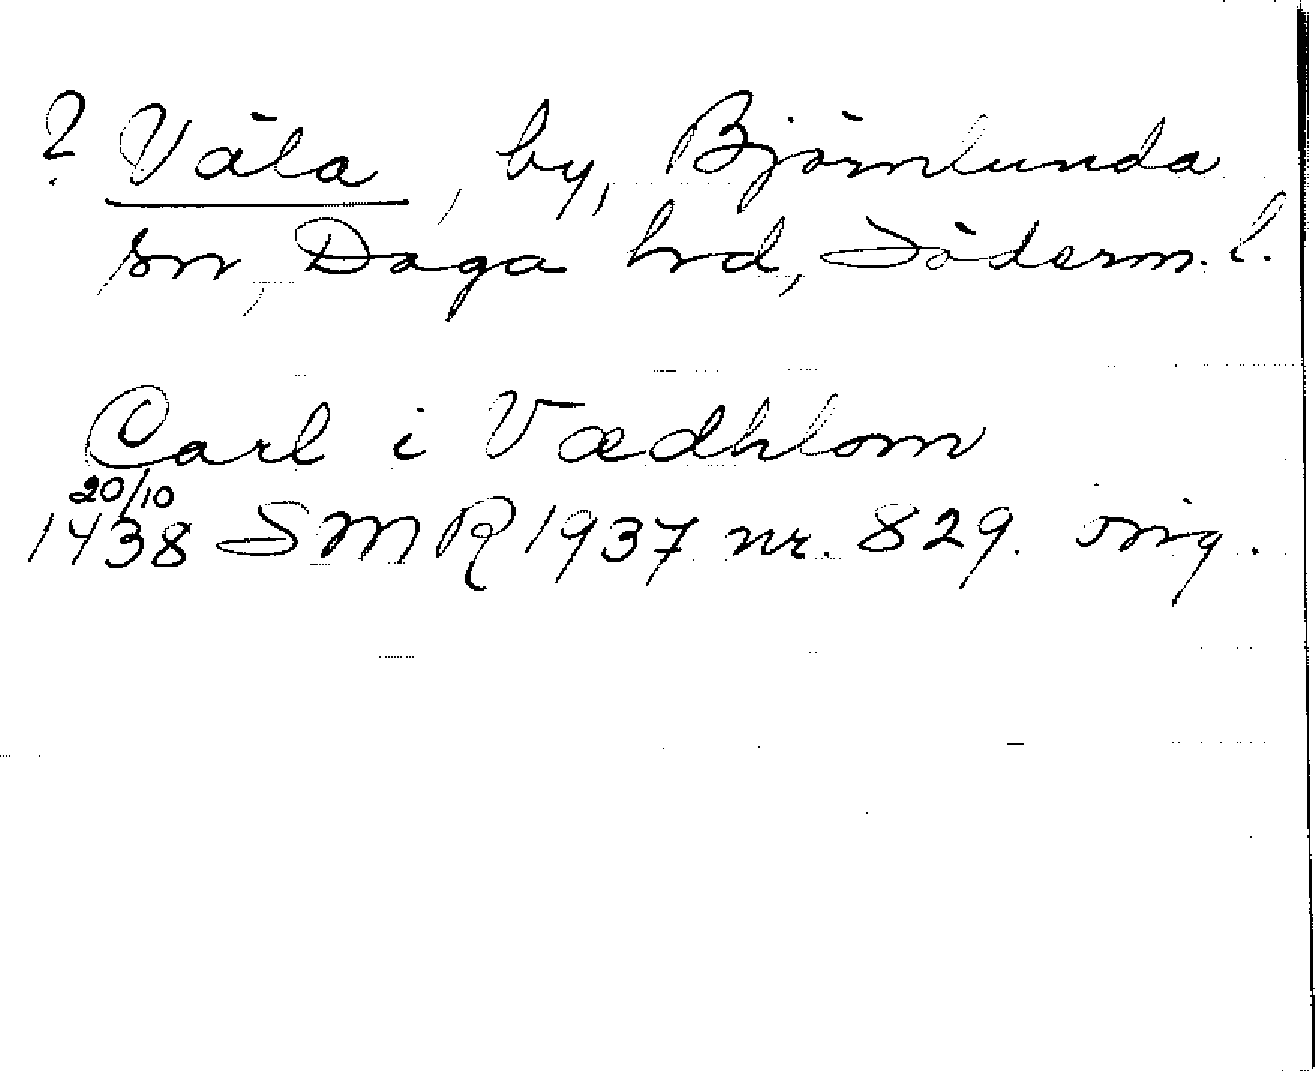 ? Väla, by, Björnlunda
sn, Daga hrd, Söderm. l.
Carl i Vædhlom
20/10
1438 SMR 1937 nr. 829. orig.